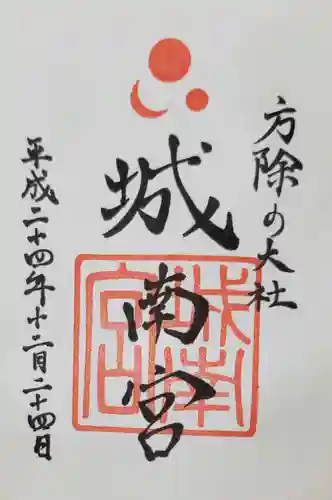 方除の大社
城南宮
城南宮印
平成二十四年十二月二十四日